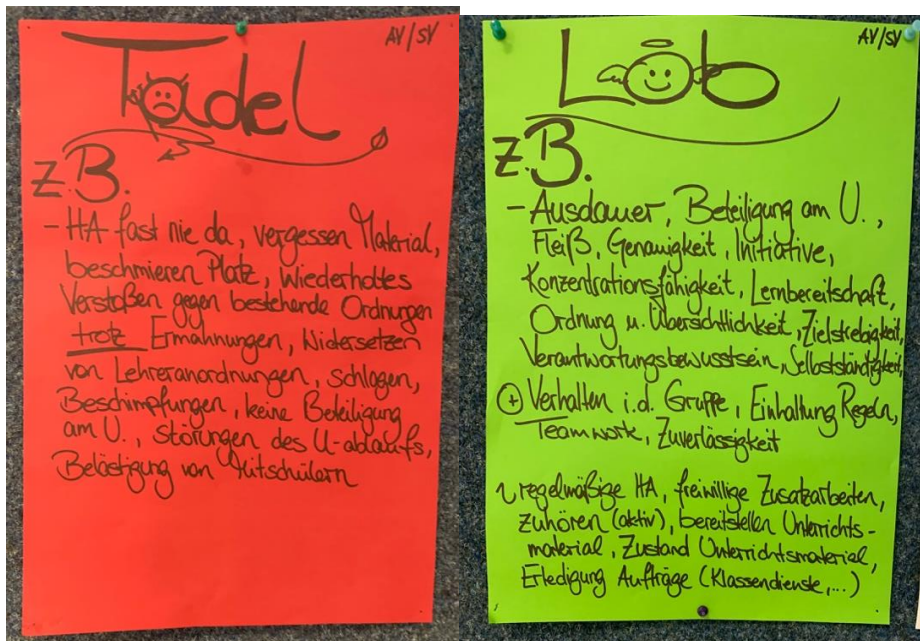 AV/SV
Tadel
z.B.
- HA fast nie da, vergessen Material,
beschmieren Platz, Wiederholtes
Verstoßen gegen bestehende Ordnungen
trotz Ermahnungen, Widersetzen
von Lehreranordnungen, schlagen,
Beschimpfungen, keine Beteiligung
am U., Störungen des U-ablaufs,
Belästigung von Mitschülern
AV/SV
Lob
z.B.
- Ausdauer, Beteiligung am U.,
Fleiß, Genauigkeit, Initiative,
Konzentrationsfähigkeit, Lernbereitschaft,
Ordnung u. Übersichtlichkeit, Zielstrebigkeit,
Verantwortungsbewusstsein, Selbstständigkeit,
+ Verhalten i.d. Gruppe, Einhaltung Regeln,
Teamwork, Zuverlässigkeit
~ regelmäßige HA, freiwillige Zusatzarbeiten,
zuhören (aktiv), bereitstellen Unterrichts-
material, Zustand Unterrichtsmaterial,
Erledigung Aufträge (Klassendienste,...)